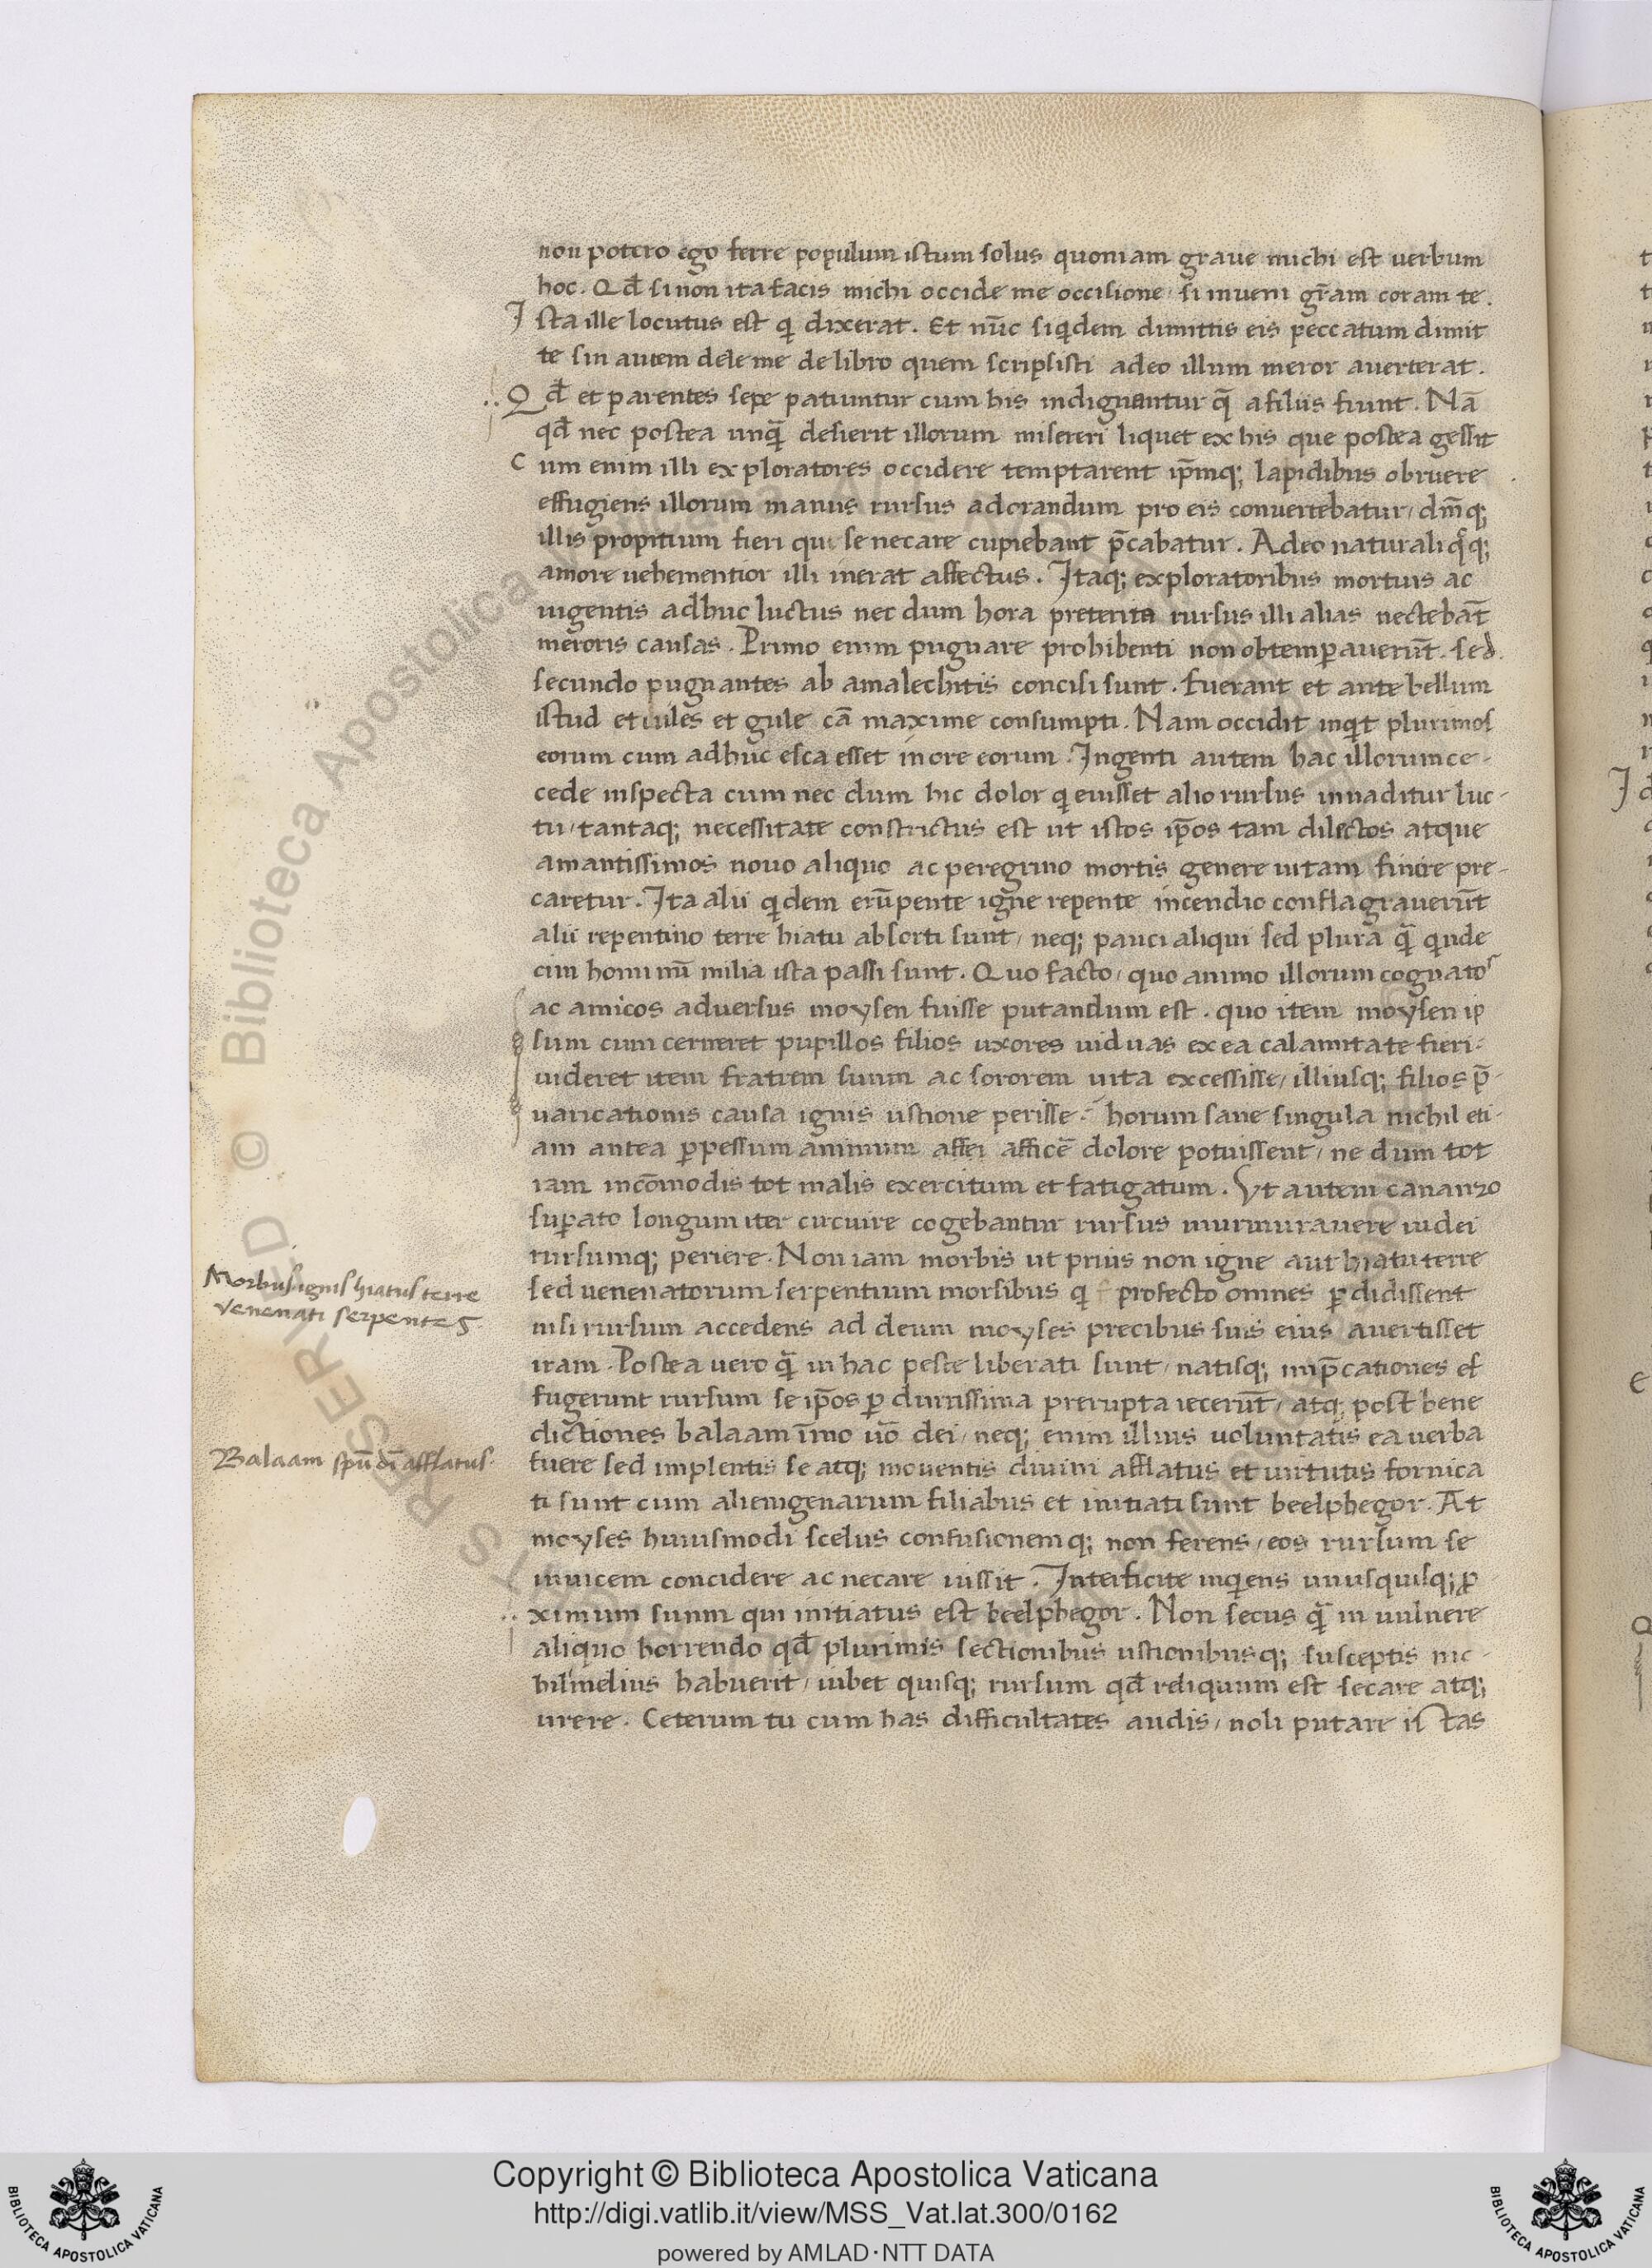 non potero ego ferre populum istum solus quoniam graue michi est uerbum
hoc. Qd̄ si non ita facis michi occide me occisione si inueni gr̄am coram te.
Ista ille locutus est qi dixerat. Et nūc siqidem dimittis eis peccatum dimit
te sin autem dele me de libro quem scripsisti adeo illum meror auerterat.
Qd̄ et parentes sepe patiuntur cum his indignantur q̄ a filiis fiunt. Nā
qd̄ nec postea unq̄ desierit illorum misereri liquet ex his que postea gessit
Cum enim illi exploratores occidere temptarent ip̄mq; lapidibus obruere
effugiens illorum manus rursus ad orandum pro eis conuertebatur, dm̄q;
illis propitium fieri qui se necare cupiebant p̄cabatur. Adeo naturali q̄q;
amore uehementior illi inerat affectus. Itaq; exploratoribus mortuis ac
uigentis adhuc luctus nec dum hora preterita rursus illi alias nectebāt
meroris causas. Primo enim pugnare prohibenti non obtemꝑauerūt. sed
secundo pugnantes ab amalechitis concisi sunt. fuerant et ante bellum
istud et gule cā maxime consumpti. Nam occidit inqit plurimos
eorum cum adhuc esca esset in ore eorum. Ingenti autem hac illorum ce-
cede inspecta cum nec dum hic dolor qieuisset alio rursus inuaditur luc-
tu, tantaq; necessitate constrictus est ut istos ip̄os tam dilectos atque
amantissimos nouo aliquo ac peregrino mortis genere uitam finire pre-
caretur. Ita alii qidem erūpente igne repente incendio conflagrauerūt
alii repentino terre hiatu absorti sunt, neq; pauci aliqui sed plura q̄ qinde
cim hominū milia ista passi sunt. Quo facto, quo animo illorum cognatos
ac amicos aduersus moysen fuisse putandum est. quo item moysen ip
sum cum cerneret pupillos filios uxores uiduas ex ea calamitate fieri.
uideret item fratrem suum ac sororem uita excessisse, illiusq; filios p̄-
uaricationis causa ignis ustione perisse. horum sane singula nichil eti-
am antea ꝑpessum animum afficē dolore potuissent, ne dum tot
iam incōmodis tot malis exercitum et fatigatum. Vt autem cananeo
suꝑato longum iter circuire cogebantur rursus murmurauere iudei
rursumq; periere. Non iam morbis ut prius non igne aut hiatu terre
sed uenenatorum serpentium morsibus qi profecto omnes ꝑdidissent
nisi rursum accedens ad deum moyses precibus suis eius auertisset
iram. Postea uero q̄ in hac peste liberati sunt, natisq; imp̄cationes ef
fugerunt rursum se ip̄os ꝑ durissima prerupta iecerūt, atq; post bene
dictiones balaam īmo uō dei, neq; enim illius uoluntatis ea uerba
fuere sed implentis se atq; mouentis diuini afflatus et uirtutis fornica
ti sunt cum alienigenarum filiabus et initiati sunt beelphegor. At
moyses huiusmodi scelus confusionemq; non ferens, eos rursum se
inuicem concidere ac necare iussit. Interficite inqiens unusquisq; ꝓ
ximum suum qui initiatus est beelphegor. Non secus q̄ in uulnere
aliquo horrendo qd̄ plurimis sectionibus ustionibusq; susceptis nic-
hil melius habuerit, iubet quisq; rursum qd̄ reliquum est secare atq;
urere. Ceterum tu cum has difficultates audis, noli putare istas
Morbus ignis hiatus terre
venenati serpentes.
Balaam spū dī afflatus.
Copyright © Biblioteca Apostolica Vaticana
http://digi.vatlib.it/view/MSS_Vat.lat.300/0162
powered by AMLAD·NTT DATA
BIBLIOTECA APOSTOLICA VATICANA
BIBLIOTECA APOSTOLICA VATICANA